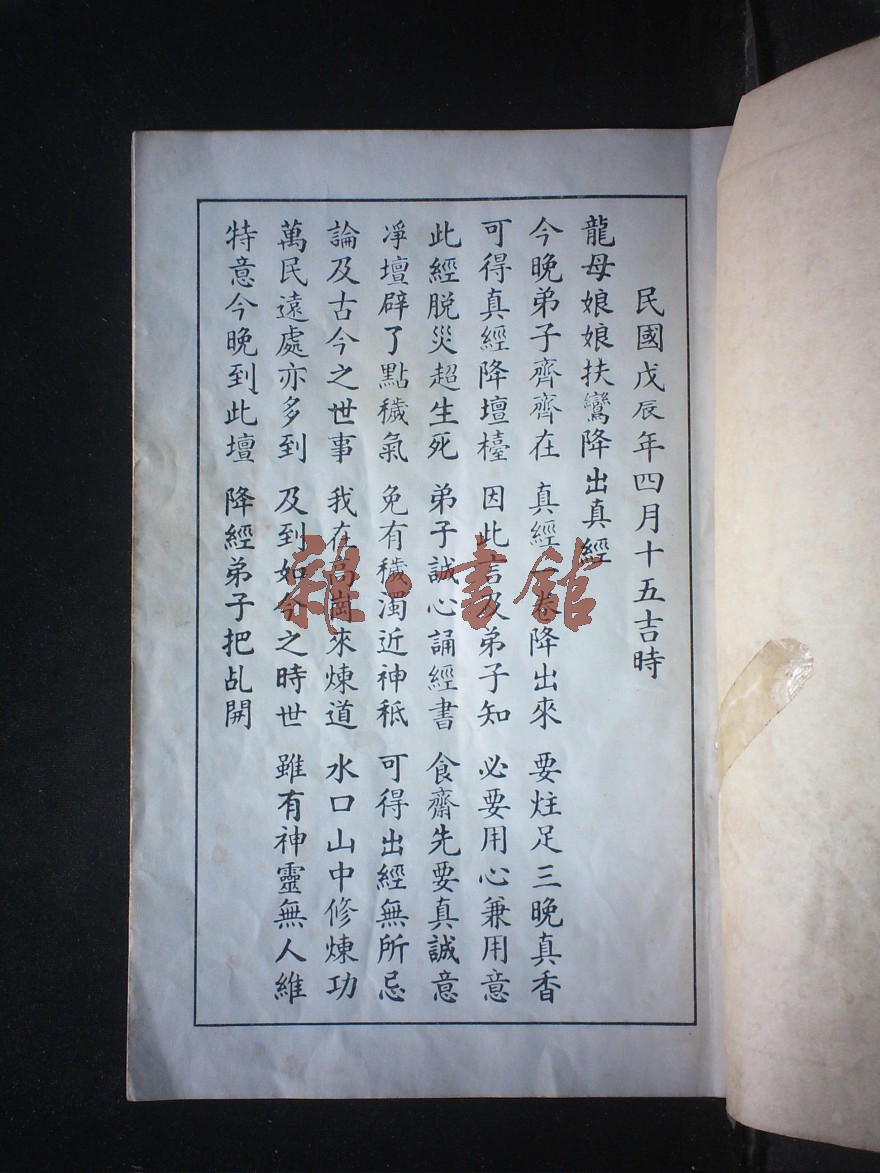 民國戊辰年四月十五吉時
龍母娘娘扶鸞降出真經
今晚弟子齊齊在 真經一卷降出來 要炷足三晚真香
可得真經降壇檯 因此言及弟子知 必要用心兼用意
此經脱災超生死 弟子誠心誦經書 食齋先要真誠意
凈壇辟了點穢氣 免有穢濁近神秪 可得出經無所忌
論及古今之世事 我在高崗來煉道 水口山中修煉功
萬民遠處亦多到 及到如今之時世 雖有神靈無人維
特意今晚到此壇 降經弟子把乩開
雜·書館